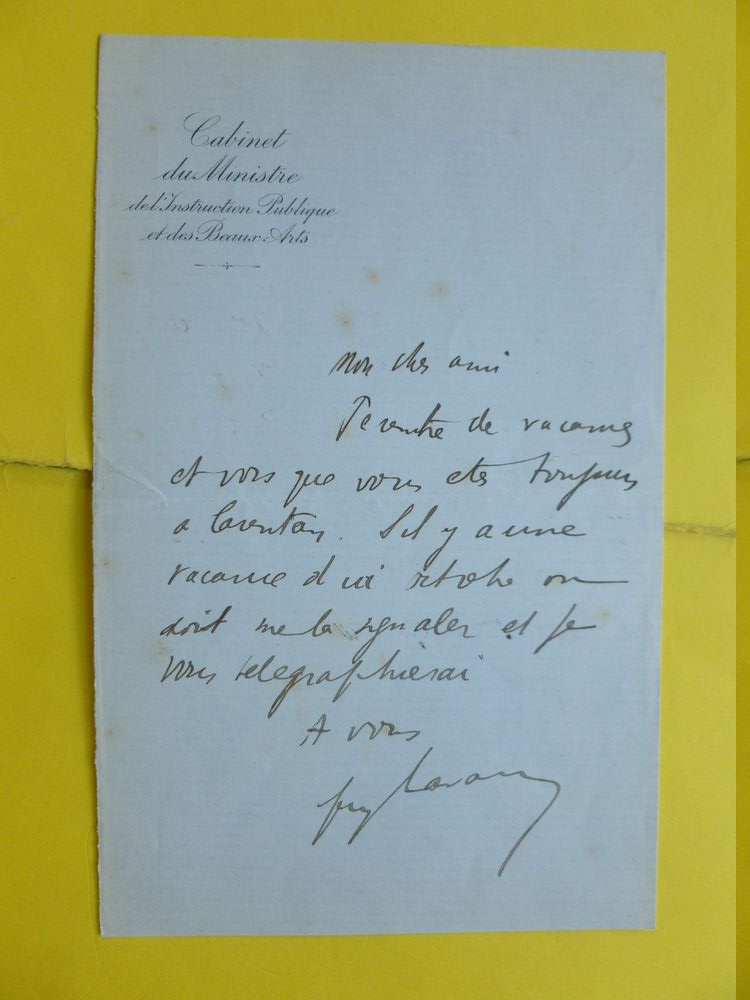 Cabinet
du Ministre
de l'Instruction Publique
et des Beaux-Arts
Mon cher ami
Je rentre de vacances
et vois que vous etes toujours
a Carentan. S'il y a une
vacance d'ici octobre on
doit me la signaler et je
vous telegraphierai
A vous